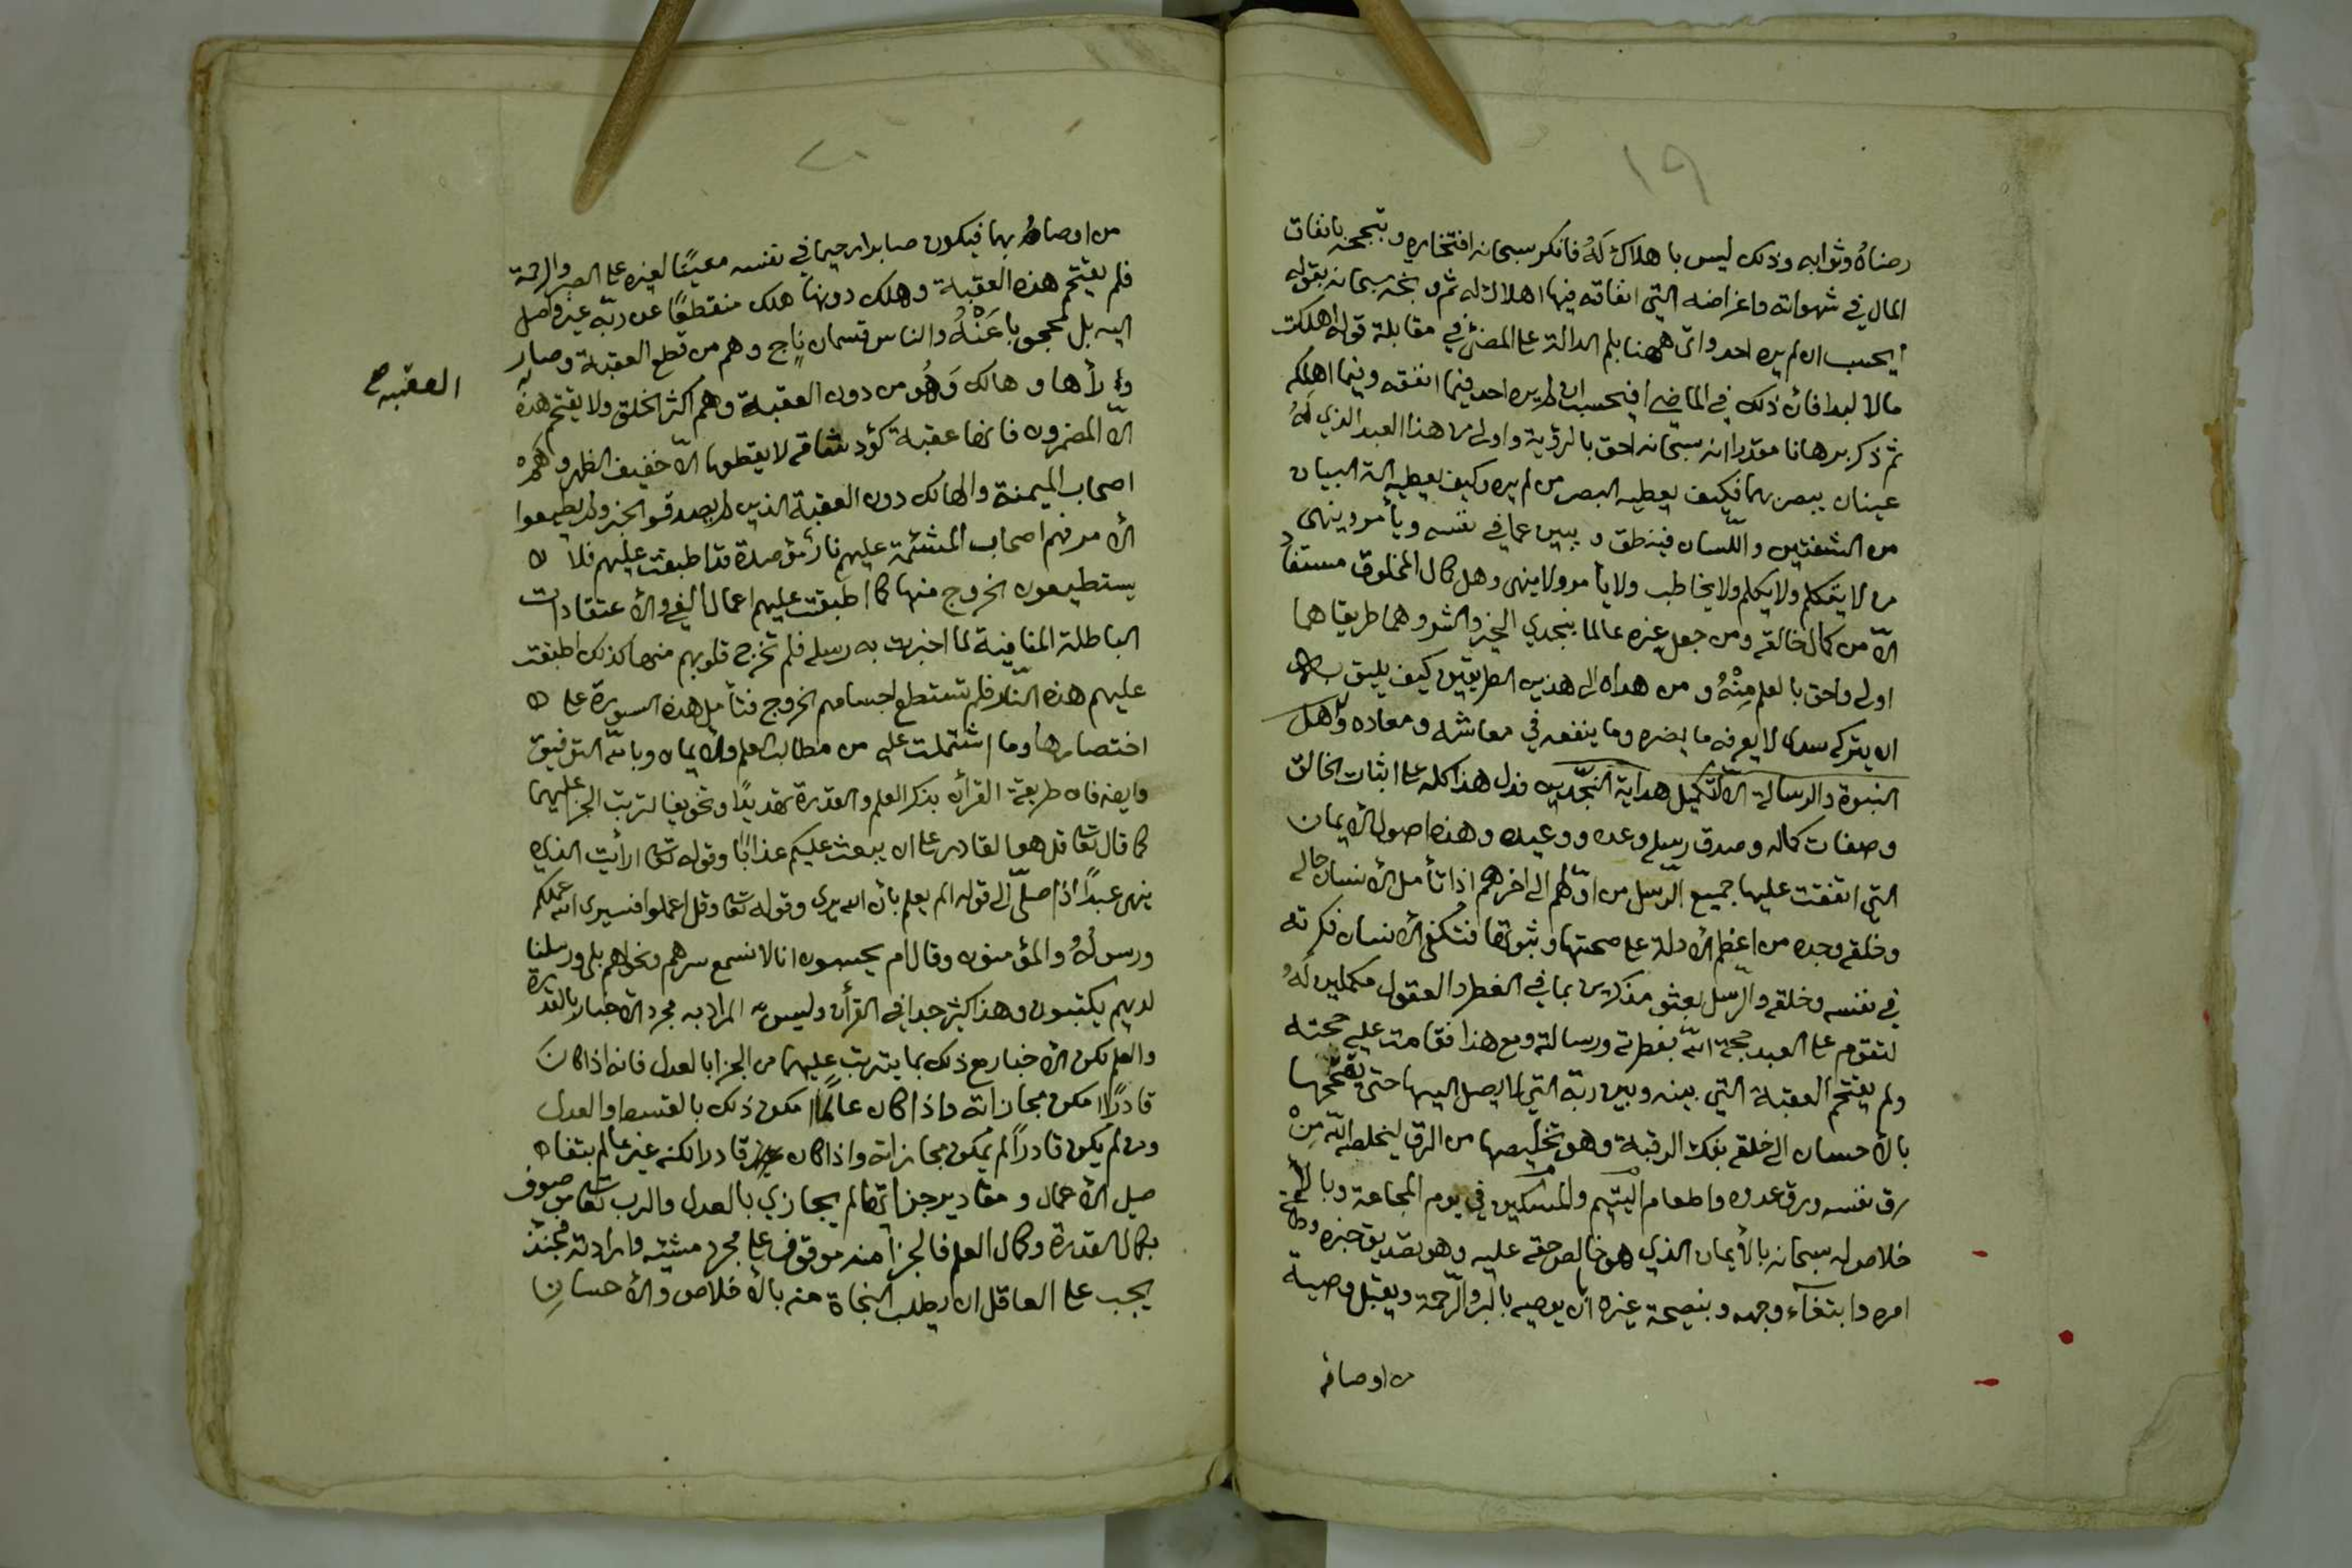 ١٩
رضاهُ وثوابه وذلك ليس باهلاك لَهُ فانكر سبحانه افتخاره وتبجحه بانفاق
المال في شهواته واغراضه التي انفاقه فيها اهلاك له ثم وبخه سبحانه بقوله
ايحسب ان لم يره احد واتى ههنا بلم الدالة على المضي في مقابلة قوله اهلكت
مالا لبدا فان ذلك في الماضي افيحسب ان لم يره احد فيما انفقه وفيما اهلكه
ثم ذكر برهانا مقدرا انه سبحانه احق بالرؤية واولى من هذا العبد الذي لَهُ
عينان يبصر بهما فكيف يعطيه البصر من لم يره وكيف يعطيه آلة البيان
من الشفتين واللّسان فينطق ويبين عما في نفسه ويأمر وينهى
من لا يتكلم ولا يكلم ولا يخاطب ولا يأمر ولا ينهى وهل كمال المخلوق مستفاد
الّا من كمال خالقه ومن جعل غيره عالما بنجدي الخير والشر وهما طريقاهما
اولى واحق بالعلم مِنْهُ ومن هداه الى هذين الطريقين كيف يليق به
ان يتركه سدى لا يعرفه ما يضره وما ينفعه في معاشه ومعاده وهل
النبوة والرسالة الّا لتكميل هداية النجّدين فدل هذا كله على اثبات الخالق
وصفات كماله وصدق رسله وعده ووعيده وهذه اصول الايمان
التي اتفقت عليها جميع الرّسل من اوّلهم الى اخرهم اذا تأمل الانسان حاله
وخلقه وجده من اعظم الادلة على صحتها وثبوتها فتكفي الانسان فكرته
في نفسه وخلقه والرّسل بعثو مذكرين بما في الفطر والعقول مكملين لَهُ
لتقوم على العبد حجة اللّه بفطرته ورسالته ومع هذا فقامت عليه حجته
ولم يقتحم العقبة التي بينه وبين ربّه التي لا يصل اليها حتى يقتحمها
بالاحسان الى خلقه بفك الرقبة وهو تخليصها من الرق ليخلصه اللّه مِنْ
رق نفسه ورق عدوه واطعام اليتيم والمسكين في يوم المجاعة وبالا
خلاص له سبحانه بالأيمان الذي هو خالص حقه عليه وهو تصديق خبره وطاعة
امره وابتغآء وجهه وبنصيحة غيره ان يوصيه بالبر والرّحمة ويقبل وصية
من اوصافه
٢٠
من اوصاهُ بها فيكون صابرا رحيما في نفسه معينًا لغيره على الصبر والرحمة
فلم يقتحم هذه العقبة وهلك دونها هلك منقطعًا عن ربّه غير واصل
اليه بل محجوبا عَنْهُ والناس قسمان ناجٍ وهم من قطع العقبة وصار
ورأها وهالك وَهُو من دون العقبة وهم اكثر الخلق ولا يقتحم هذه
العقبه صح
الّا المضمرون فانها عقبة كؤد شاقه لا يقطعها الّا خفيف الظهر وهُمْ
اصحاب الميمنة والهالك دون العقبة الذين لم يصدقوا الخبر ولم يطيعوا
الأمر فهم اصحاب المشئمة عليهم نار مؤصدة قد اطبقت عليهم فلا
يستطيعون الخروج منها كما اطبقت عليهم اعمال الغي والأعتقادات
الباطلة المنافية لما اخبرت به رسله فلم تخرج قلوبهم منها كذلك اطبقت
عليهم هذه النّار فلم تستطع اجسامهم الخروج فتأمل هذه السورة على
اختصارها وما اشتملت عليه من مطالب العلم والايمان وباللّه التوفيق
وايضه فان طريقة القرأن يذكر العلم والقدرة تهديدًا وتخويفا لترتب الجزا عليهما
كما قال تعا قل هو القادر على ان يبعث عليكم عذابًا وقوله تعا ارأيت الذي
ينهى عبدًا اذا صلّى الى قوله الم يعلم بأن الله يرى وقوله تعا وقل اعملوا فسيرى الله عملكم
ورسولُهُ والمؤمنون وقال ام يحسبون انا لا نسمع سرهم ونجواهم بلى ورسلنا
لديهم يكتبون وهذا كثير جدا في القرأن وليس المراد به مجرد الأخبار بالقدرة
والعلم لكن الأخبار مع ذلك بما يترتب عليهما من الجزا بالعدل فانه اذا كَانَ
قادرًا امكن مجازاته واذا كان عالمًا امكن ذلك بالقسط والعدل
ومن لم يكن قادرًا لم يمكن مجازاته واذا كان قادرا لكنه غير عالم بتفا
صيل الأعمال ومقادير جزائها لم يجازي بالعدل والرب تعا موصوف
بكمال القدرة وكمال العلم فالجزا منه موقوف على مجرد مشيئته وارادته فحينئذ
يجب على العاقل ان يطلب النجاة منه بالأخلاص والأحسانِ